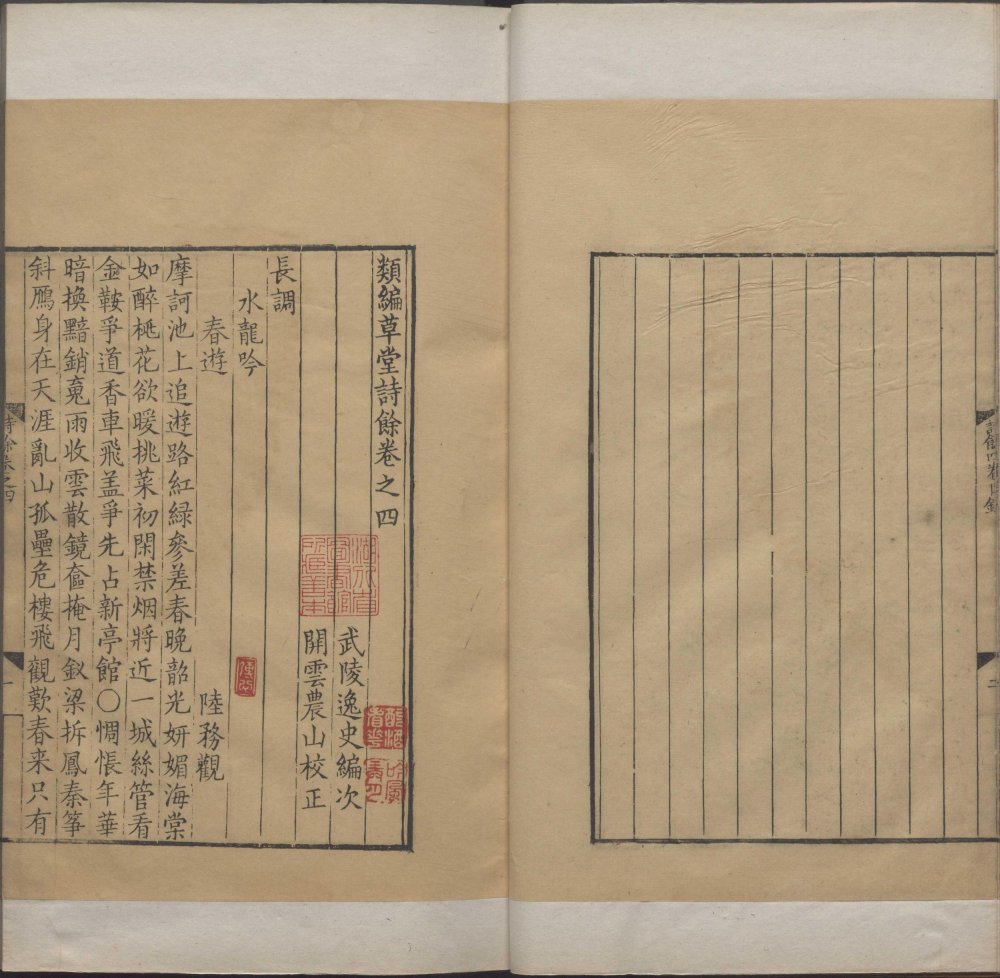 類編草堂詩餘卷之四
武陵逸史編次
開雲農山校正
長調
水龍吟
春遊
陸務觀
摩訶池上追遊路紅緑參差春晚韶光妍媚海棠
如醉桃花欲暖挑菜初閑禁烟將近一城絲管看
金鞍爭道香車飛盖爭先占新亭館○惆悵年華
暗換黯銷䰟雨收雲散鏡奩掩月釵梁拆鳳秦筝
斜鴈身在天涯亂山孤壘危樓飛觀歎春来只有
湖北省
圖書館
所臧善本
詩餘卷之四
一
二